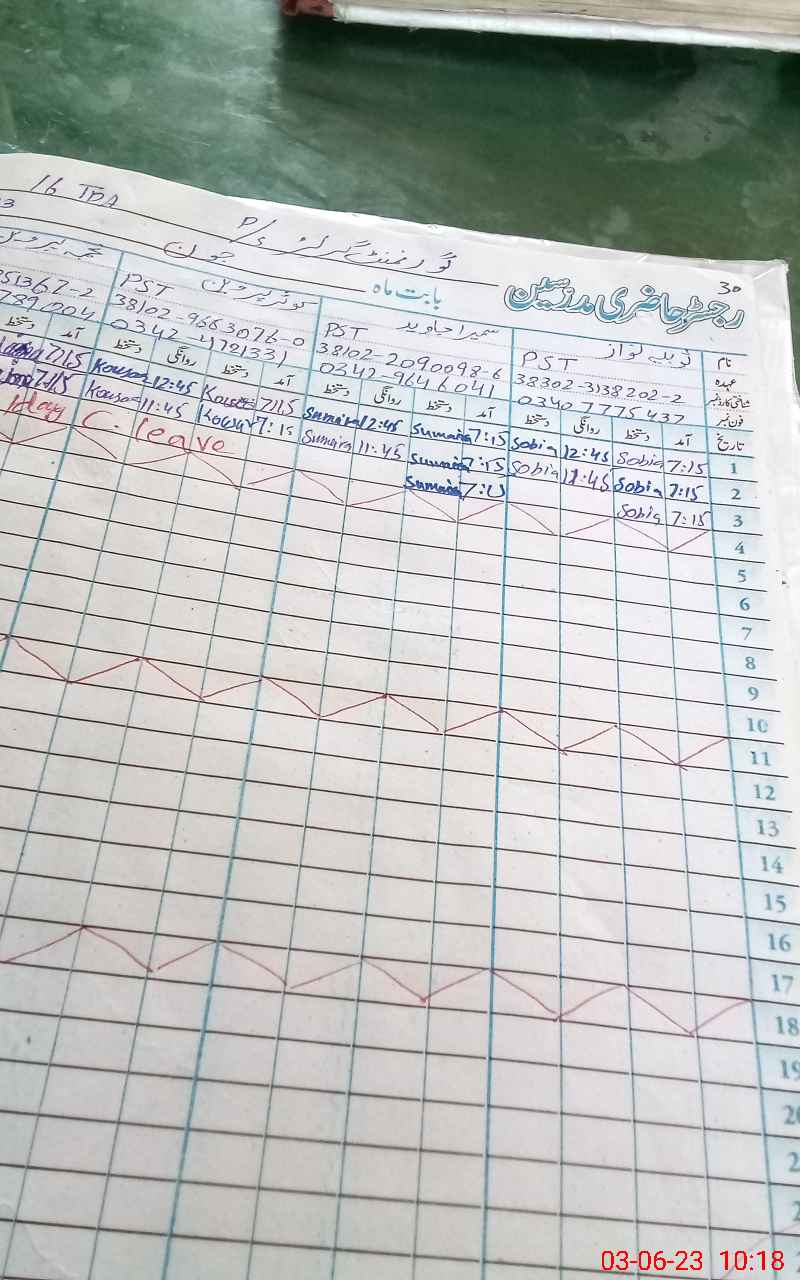 16 TDA
گورنمنٹ گرلز P/S
30
رجسٹر حاضری مدرسین
بابت ماہ جون
نام ثوبیہ نواز سمیرا جاوید کوثر پروین
عہدہ PST PST PST
شناختی کارڈ نمبر 38302-3138202-2 38102-2090098-6 38102-9663076-0 51367-2
فون نمبر 0340 7775437 0342-9646041 0342-4721331 789004
تاریخ آمد دستخط روانگی دستخط آمد دستخط روانگی دستخط آمد دستخط روانگی دستخط آمد دستخط
1 7:15 Sobia 12:45 Sobia 7:15 Sumaira 12:45 Sumaira 7:15 Kousar 12:45 Kousar 7:15
2 7:15 Sobia 11:45 Sobia 7:15 Sumaira 11:45 Sumaira 7:15 Kousar 11:45 Kousar 7:15
3 7:15 Sobia 7:15 Sumaira C. leave
4
5
6
7
8
9
10
11
12
13
14
15
16
17
18
19
20
03-06-23 10:18